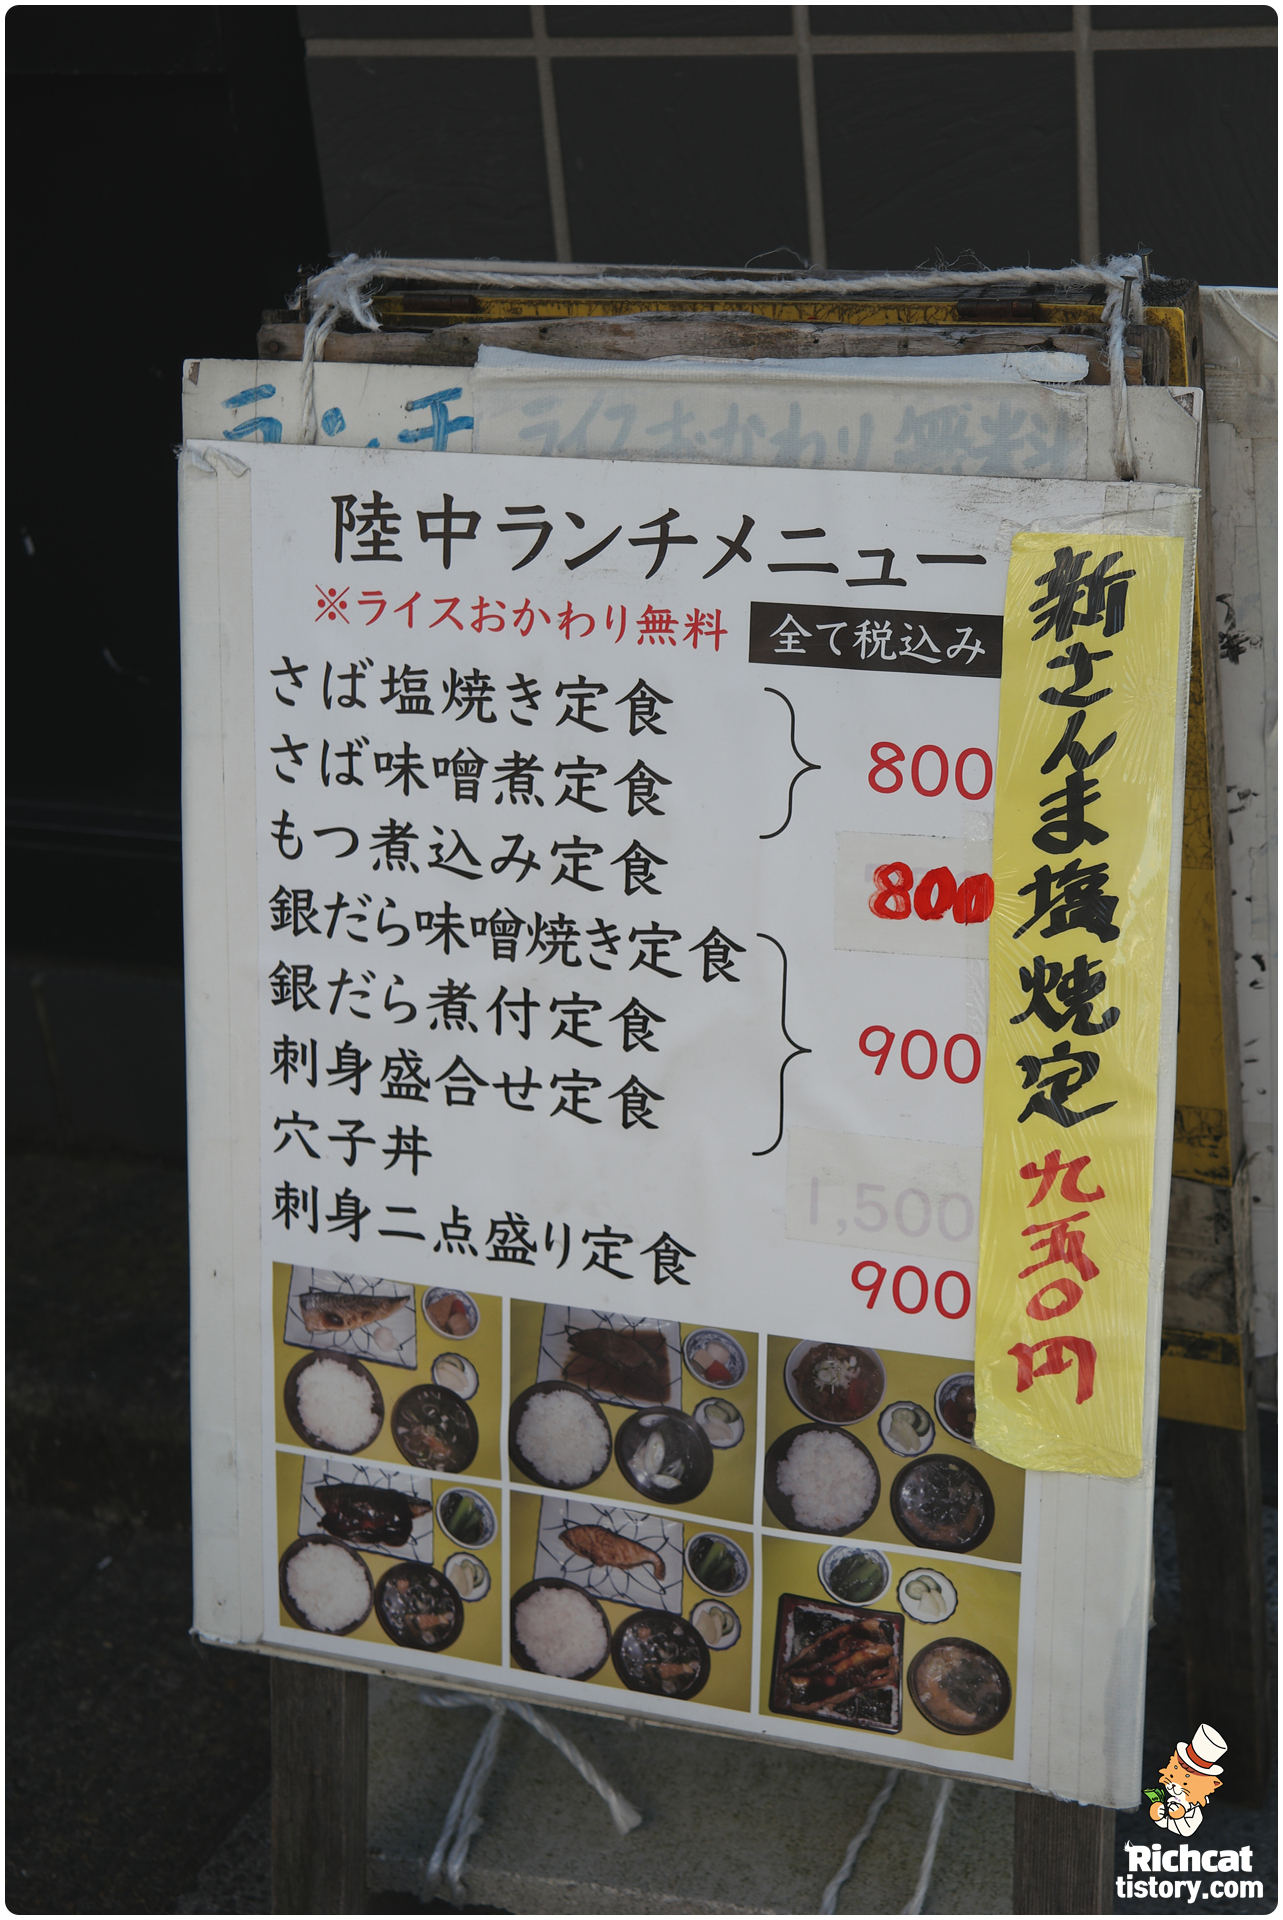 ランチ
ライスおかわり無料
陸中ランチメニュー
※ライスおかわり無料
全て税込み
さば塩焼き定食
さば味噌煮定食
800
もつ煮込み定食
800
銀だら味噌焼き定食
銀だら煮付定食
900
刺身盛合せ定食
穴子丼
1,500
刺身二点盛り定食
900
新さんま塩焼定
九五〇円
Richcat
tistory.com